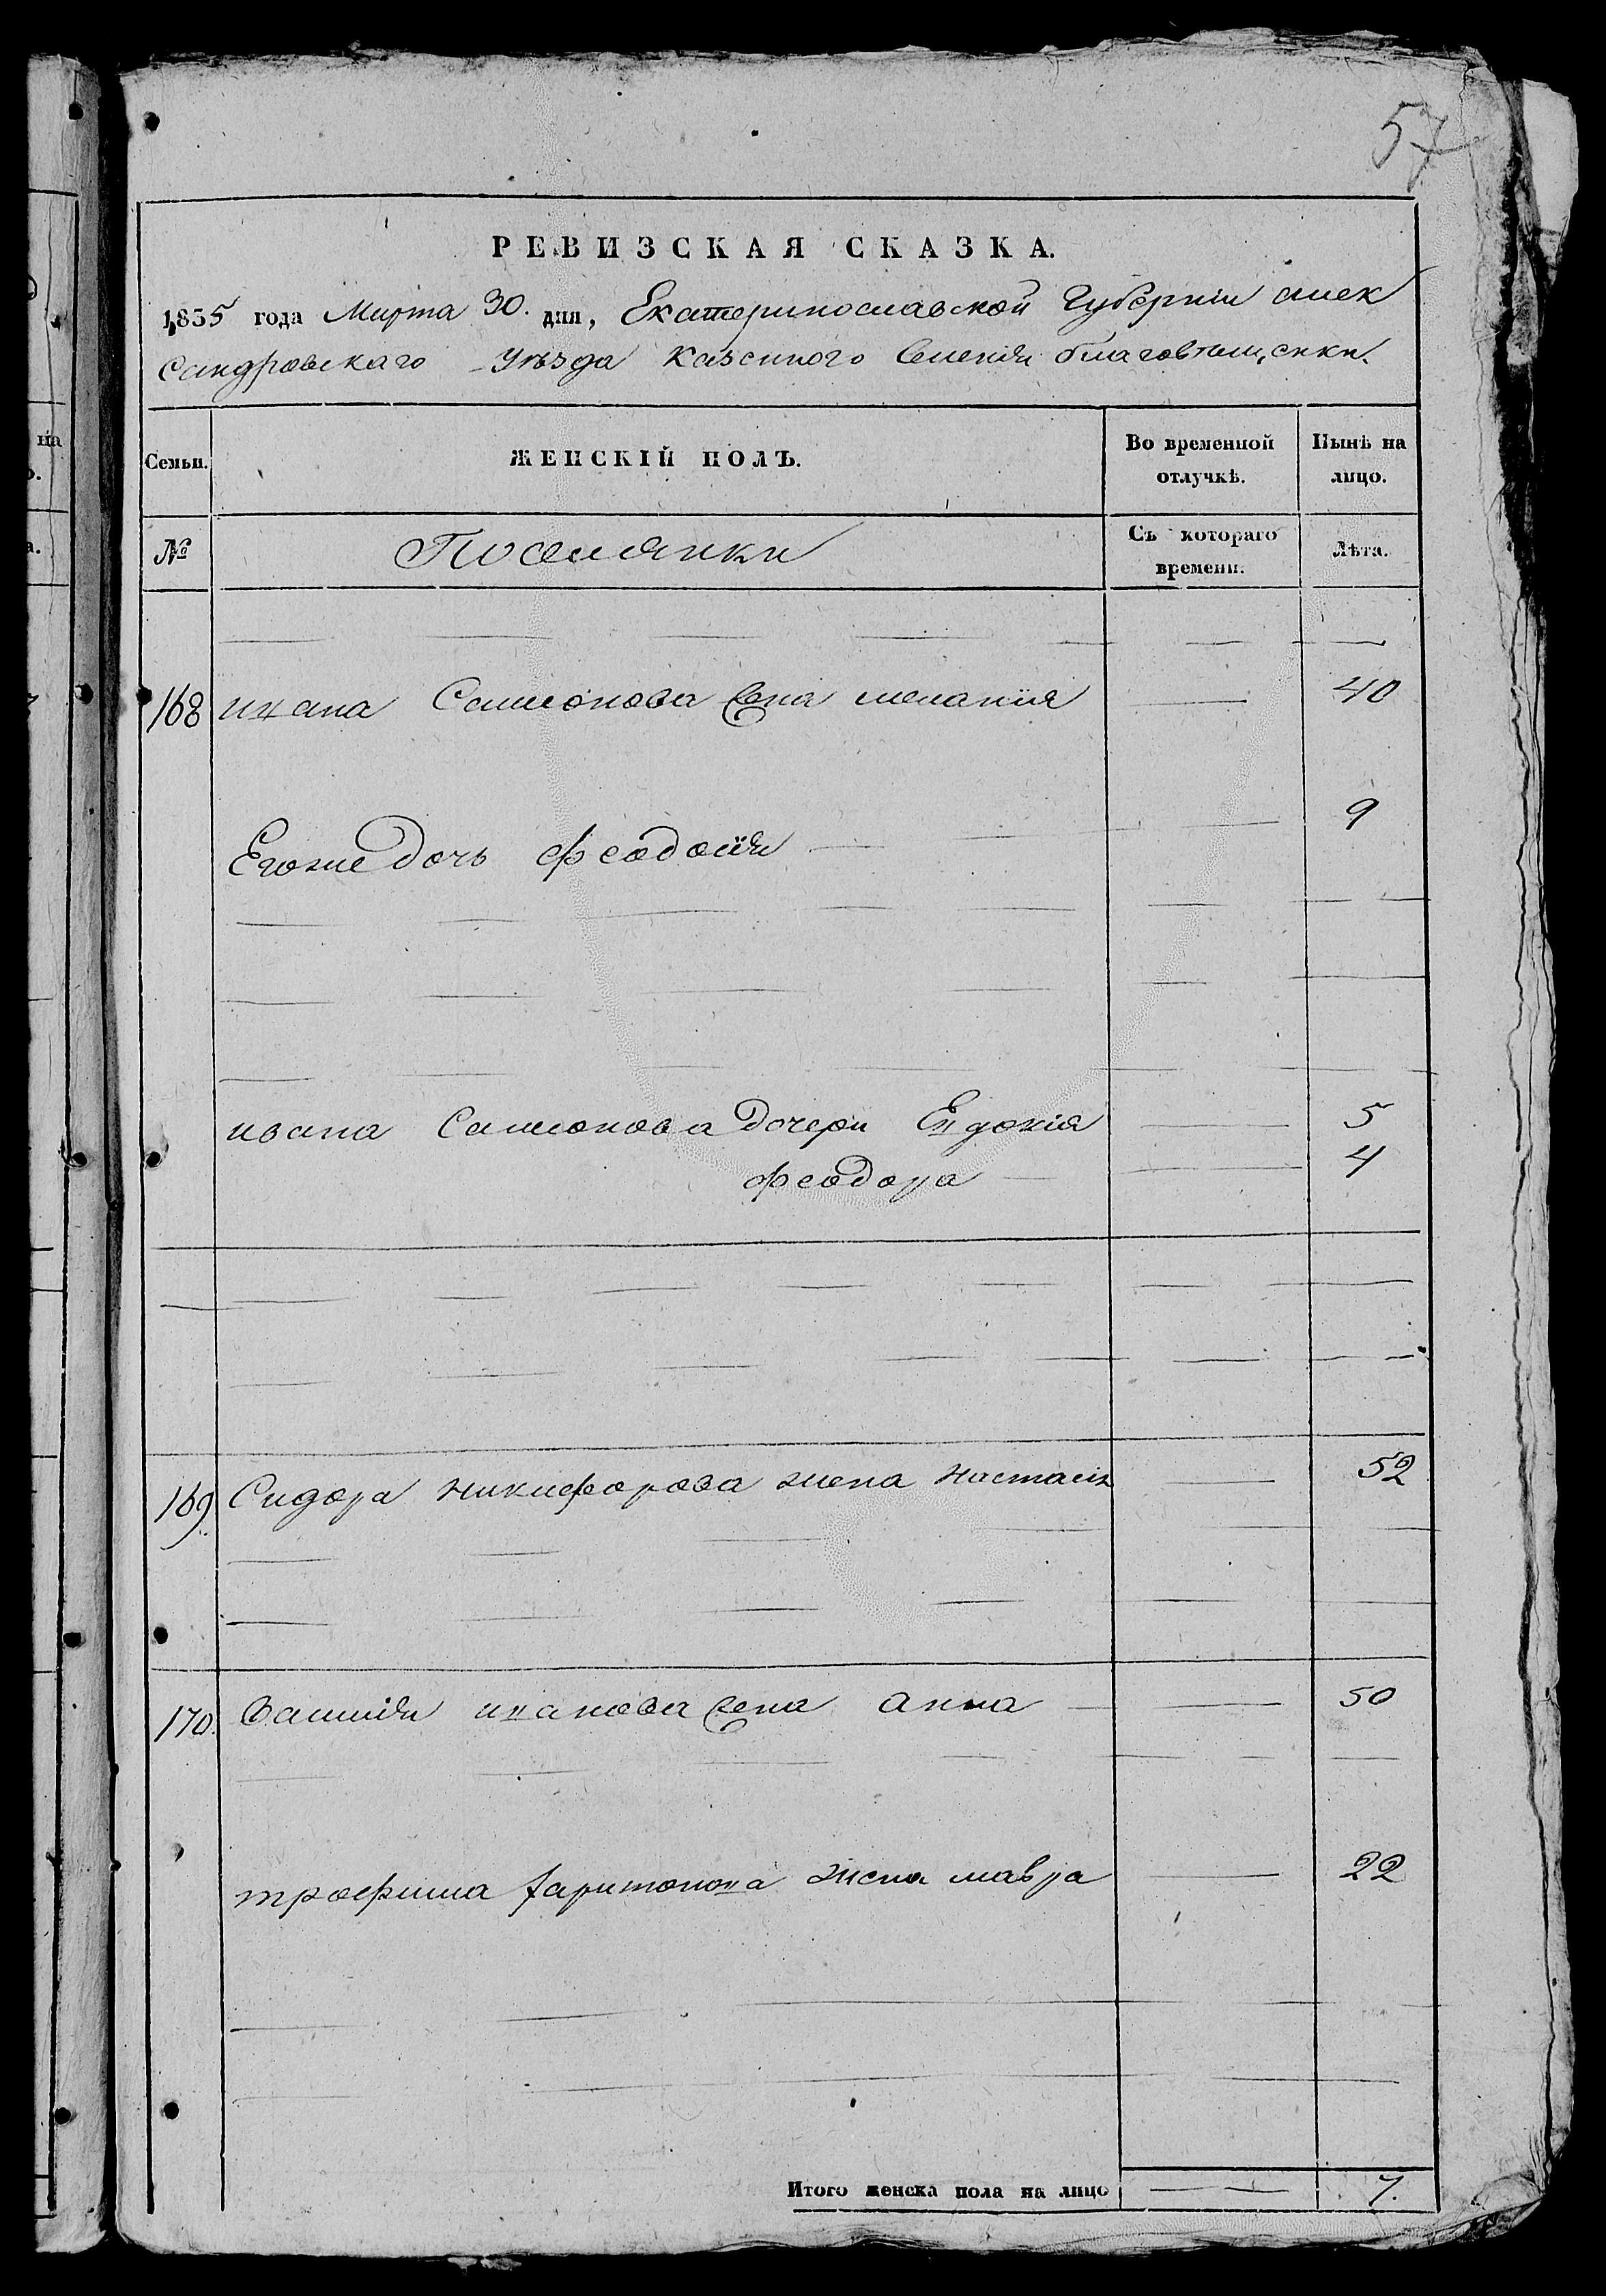 57
РЕВИЗСКАЯ СКАЗКА.
1835 года Марта 30. дня, Екатеринославской Губерніи алек
сандровскаго уѣзда казенного Селенія благовѣщенки.
Семьи. ЖЕНСКІЙ ПОЛЪ. Во временной отлучкѣ. Нынѣ на лицо.
№ Поселянки Съ котораго времени. Лѣта.
168 ивана Самсонова жена меланія 40
Егоже дочь феодосія 9
ивана Самсонова дочери Евдокія 5
феодора 4
169. Сидора никифорова жена настасія 52
170. Василія иванова жена анна 50
трофима харитонова жена мавра 22
Итого женска пола на лицо 7.